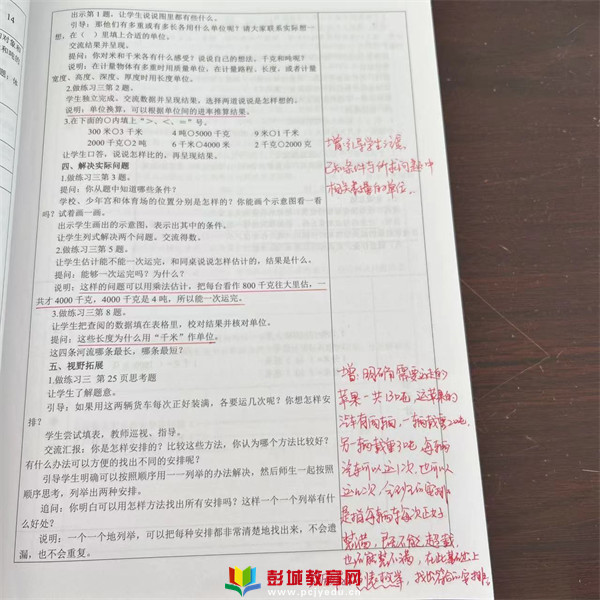 14
出示第 1 题，让学生说说图里都有些什么。
引导：那他们有多重或有多长各用什么单位呢？请大家联系实际想一
想，在（　）里填上合适的单位。
交流结果并呈现。
提问：你对米和千米各有什么感受？说说自己的想法，千克和吨呢？
说明：在计量物体有多重时用质量单位，在计量路程、长度，或者计量
宽度、高度、深度、厚度时用长度单位。
2.做练习三第 2 题。
学生独立完成，交流数据并呈现结果，选择两道说说是怎样想的。
说明：单位换算，可以根据单位间的进率推算结果。
3.在下面的○内填上“＞、＜、＝”号。
300 米○3 千米　4 吨○5000 千克　9 米○1 千米
2000 千克○2 吨　6 千米○4000 米　2 千克○2000 克
让学生口答，说说怎样比的，再呈现结果。
四、解决实际问题
1.做练习三第 3 题。
提问：你从题中知道哪些条件？
学校、少年宫和体育场的位置分别是怎样的？你能画个示意图看一看
吗？试着画一画。
出示学生画出的示意图，表示出其中的条件。
让学生列式解决两个问题，交流得数。
2.做练习三第 5 题。
让学生估计能不能一次运完，和同桌说说怎样估计的，结果是什么。
提问：能够一次运完吗？为什么？
说明：这样的问题可以用乘法估计，把每台看作 800 千克往大里估，一
共才 4000 千克，4000 千克是 4 吨，所以能一次运完。
3.做练习三第 8 题。
让学生把查阅的数据填在表格里，校对结果并核对单位。
提问：这些长度为什么用“千米”作单位。
这四条河流哪条最长，哪条最短？
五、视野拓展
1.做练习三 第 25 页思考题
让学生了解题意。
引导：如果用这两辆货车每次正好装满，各要运几次呢？你想怎样安
排？
学生尝试填表，教师巡视、指导。
交流汇报：你是怎样安排的？比较这些方法，你认为哪个方法比较好？
有什么办法可以方便的找出不同的安排呢？
引导学生明确可以按照顺序用一一列举的办法解决，然后师生一起按照
顺序思考，列举出两种安排。
追问：你明白可以用怎样方法找出所有安排吗？这样一个一个列举有什
么好处？
说明：一个一个地列举，可以把每种安排都非常清楚地找出来，不会遗
漏，也不会重复。
增：引导学生注意
已知条件与所求问题中
相关数量的单位。
增：明确需要运走的
苹果一共130吨，运苹果的
汽车有两辆，一辆载重20吨，
另一辆载重30吨，每辆
汽车可以运1次，也可以
是指每辆车每次正好
装满，既不能超载，
也不能装不满，在此基础上
找出符合的安排。
彭城教育网
www.pcjyedu.cn